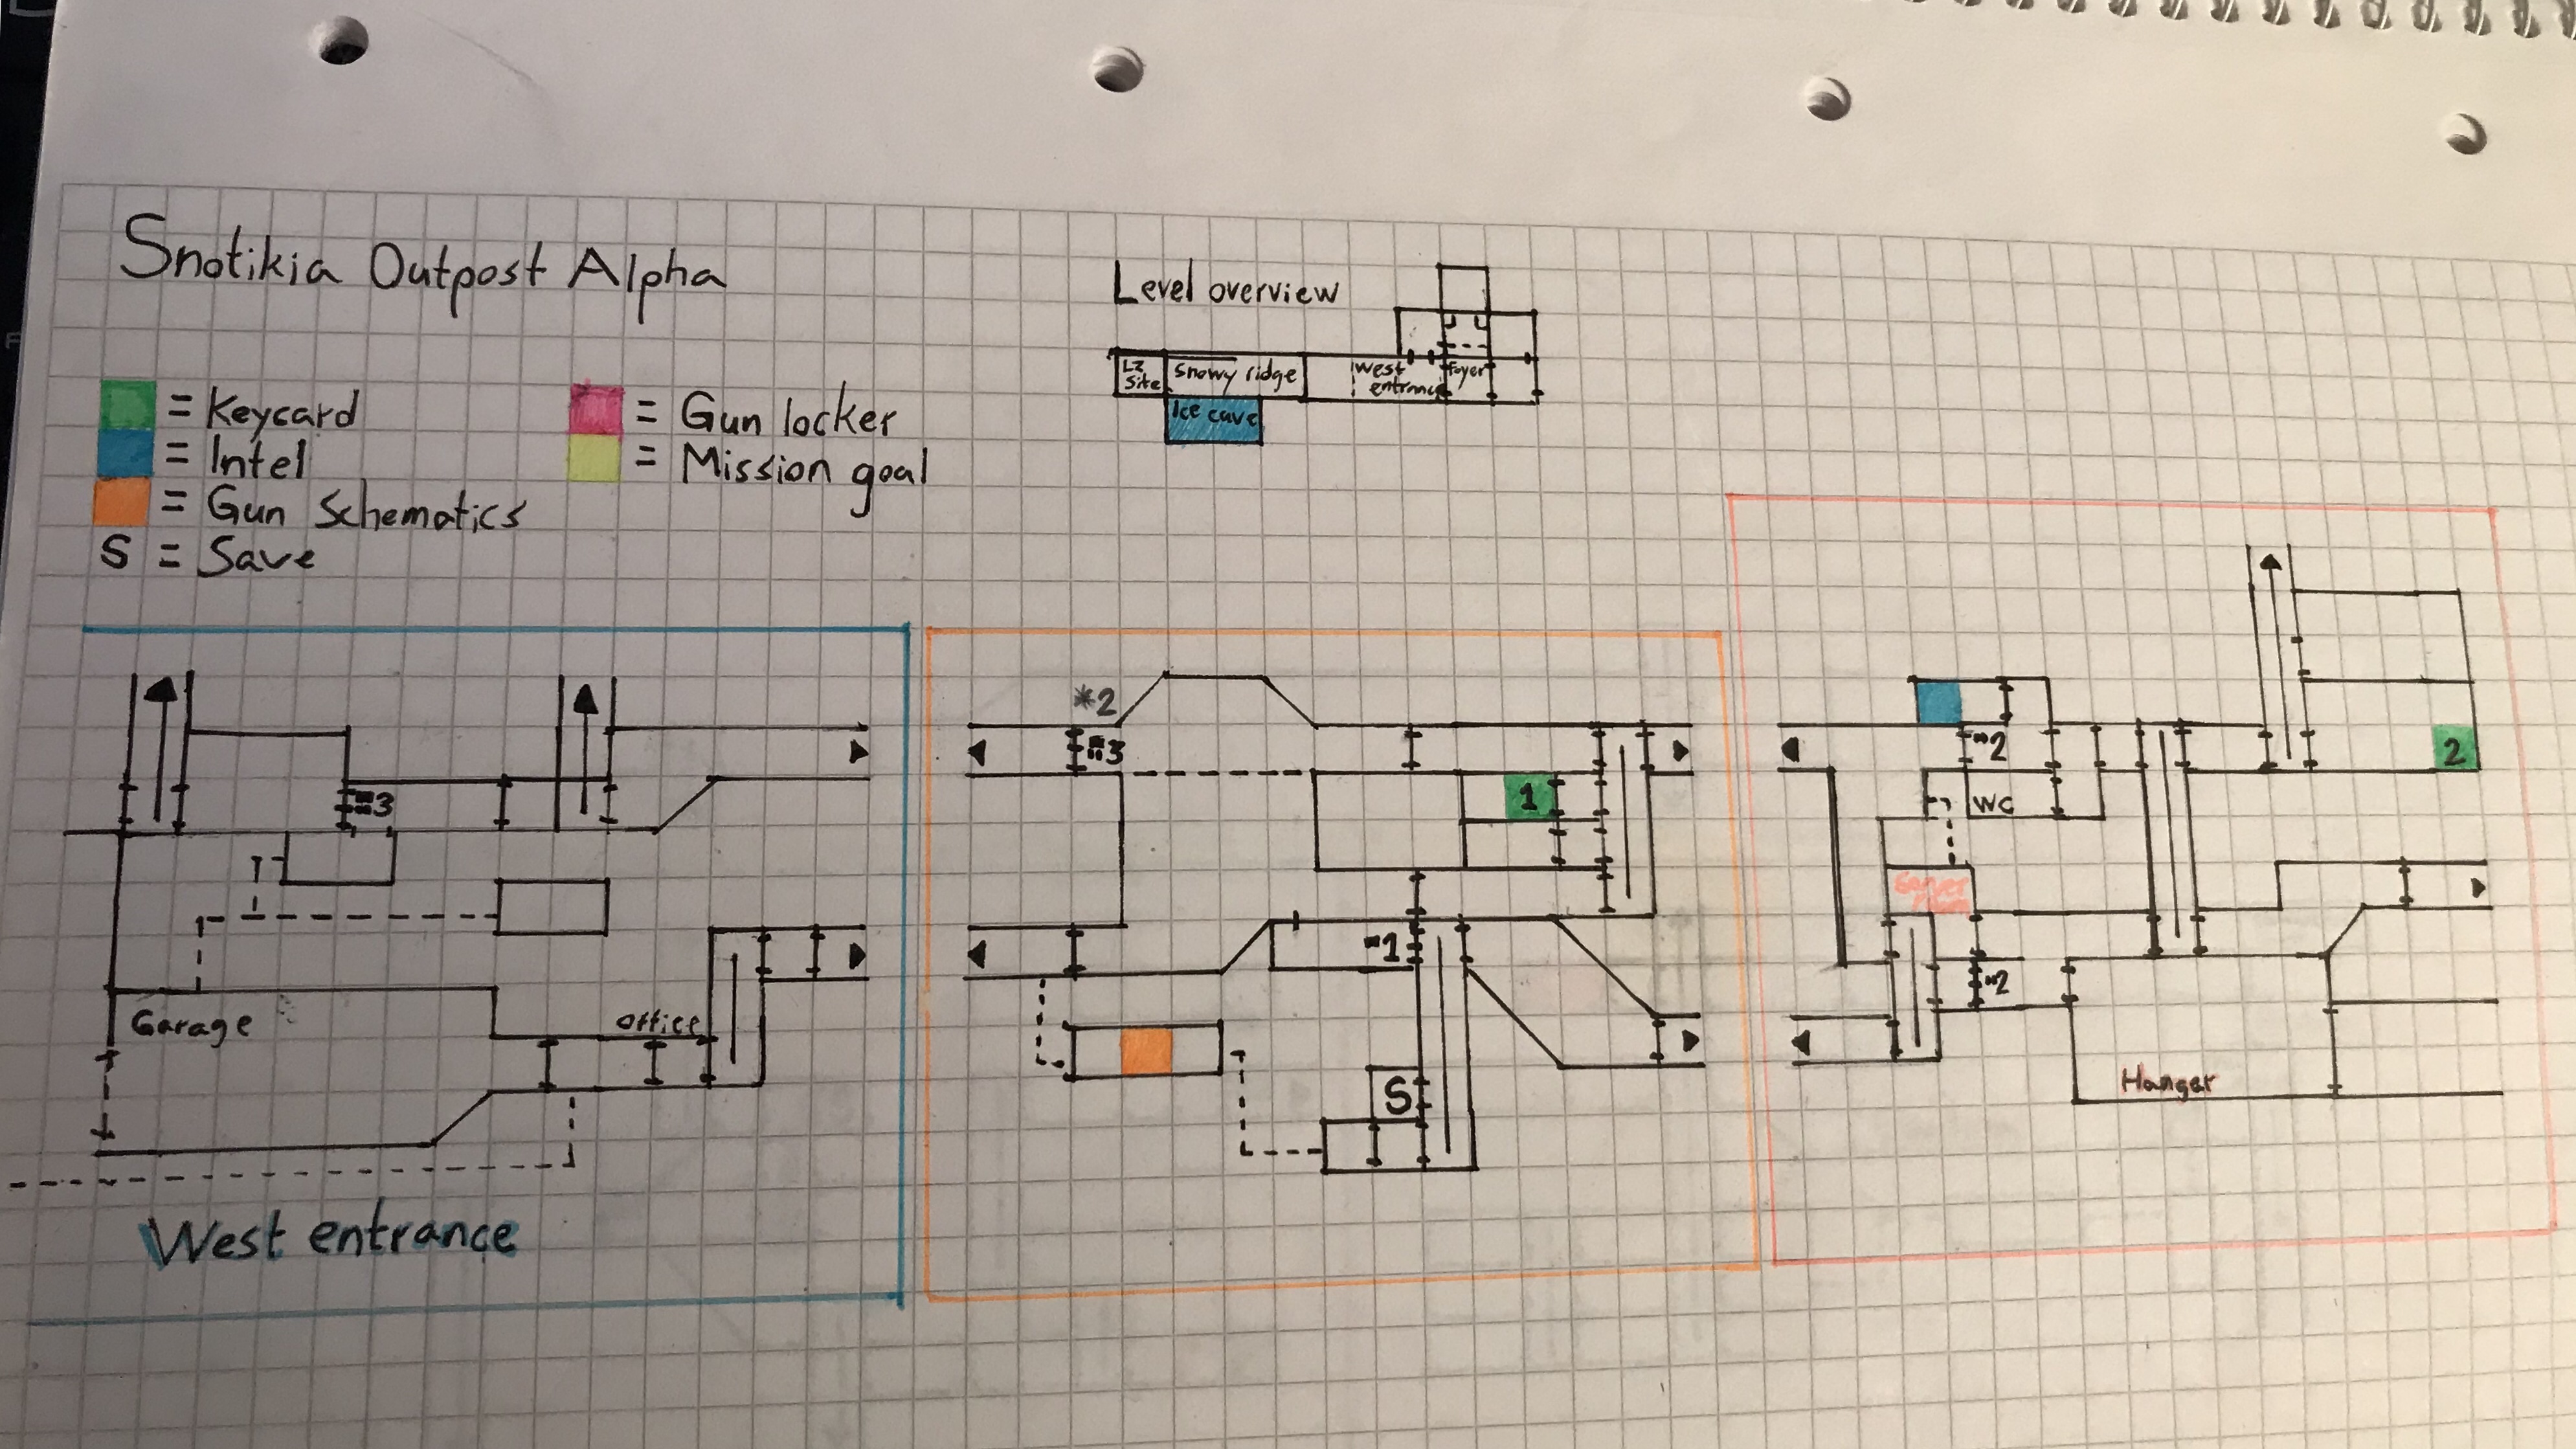 Snotikia Outpost Alpha
Level overview
LZ
Site
Snowy ridge
West
entrance
Foyer
Ice cave
= Keycard
= Intel
= Gun Schematics
S = Save
= Gun locker
= Mission goal
=3
Garage
Office
West entrance
*2
=3
1
"1
S
"2
2
WC
Server
"2
Hanger